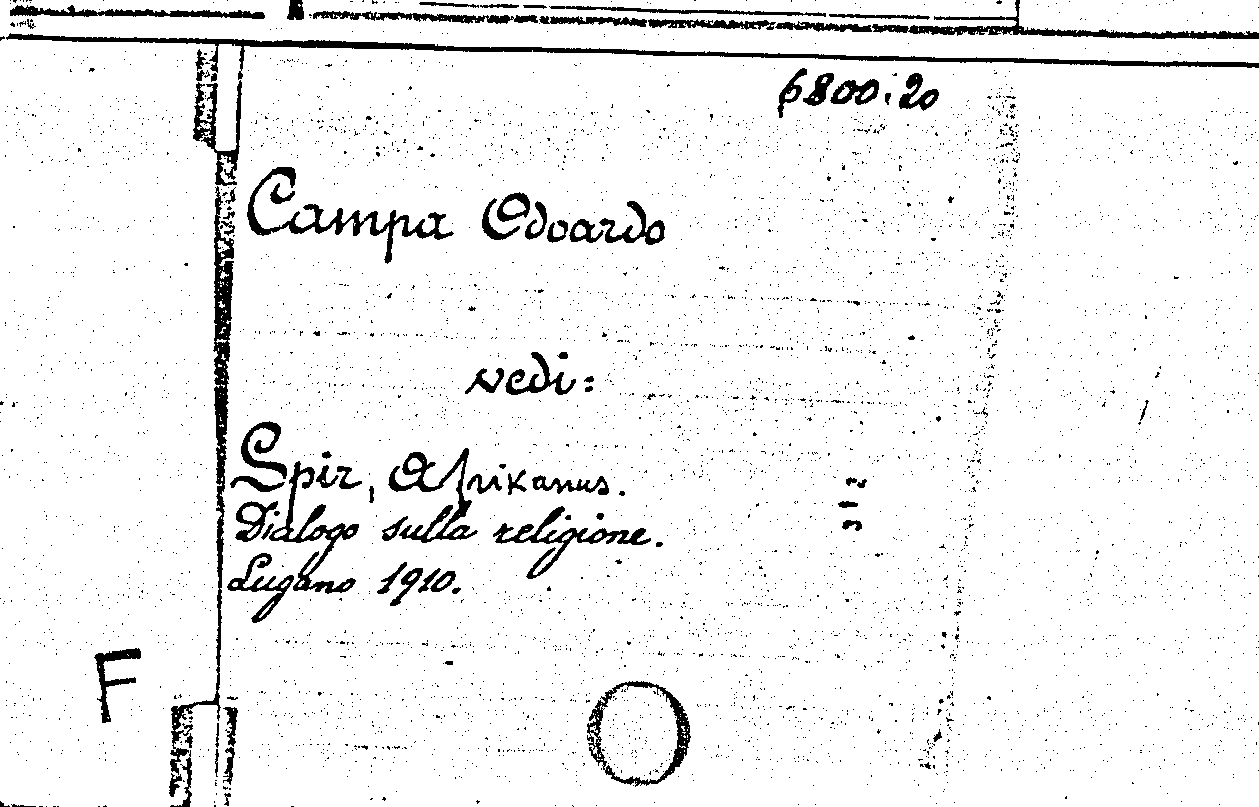 6800:20
Campa Odoardo
vedi:
Spir, Afrikanus.
Dialogo sulla religione.
Lugano 1910.
F